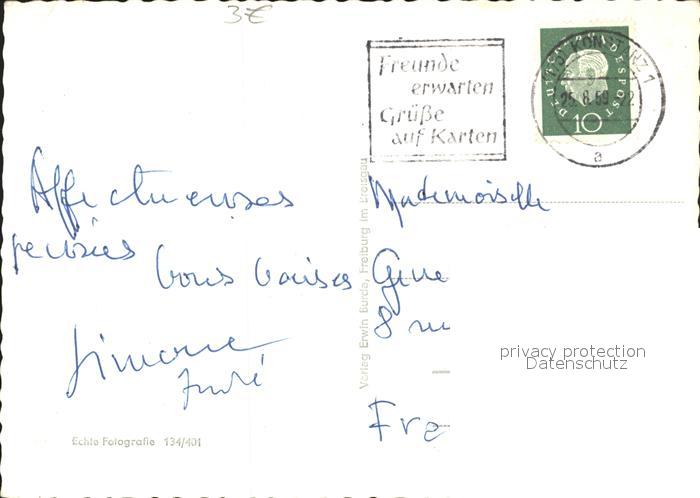 3€
Freunde
erwarten
Grüße
auf Karten
KONSTANZ 1
25.8.59
a
DEUTSCHE BUNDESPOST
10
Affectueuses
pensées
bons baisers
Simone
André
Echte Fotografie 134/401
Verlag Erwin Burda, Freiburg im Breisgau
Mademoiselle
8 
Fra
privacy protection
Datenschutz